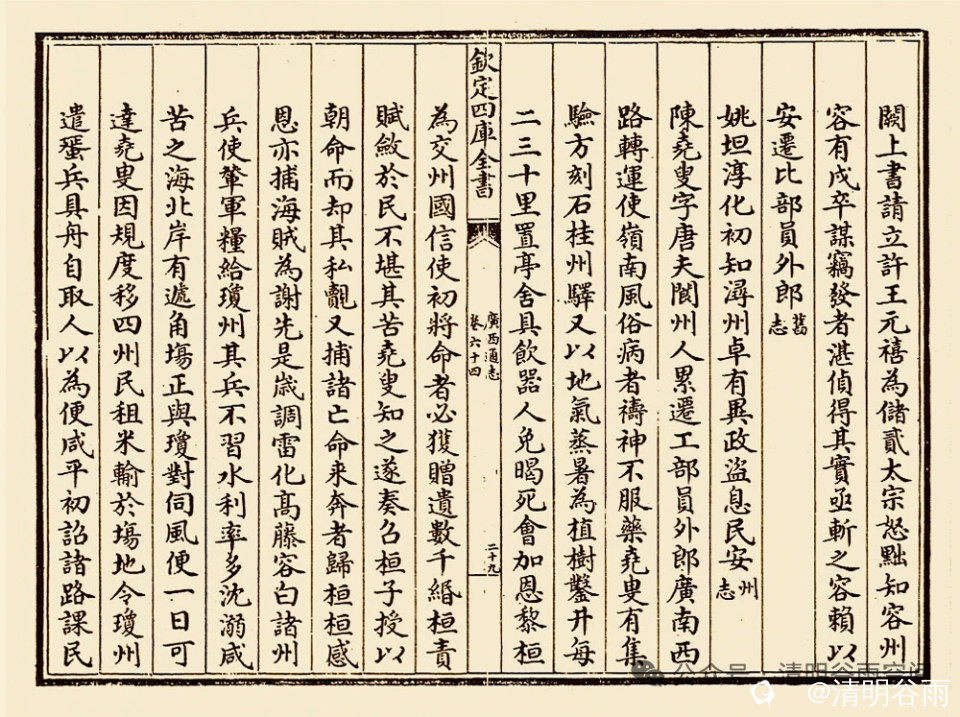 闕上書請立許王元禧為儲貳太宗怒黜知容州
容有戍卒謀竊發者湛偵得其實亟斬之容賴以
安遷比部員外郎舊志
姚坦淳化初知潯州卓有異政盜息民安州志
陳堯叟字唐夫閬州人累遷工部員外郎廣南西
路轉運使嶺南風俗病者禱神不服藥堯叟有集
驗方刻石桂州驛又以地氣蒸暑為植樹鑿井每
二三十里置亭舍具飲器人免暍死會加恩黎桓
欽定四庫全書
廣西通志
卷六十四
二十九
為交州國信使初將命者必獲贈遺數千緡桓責
賦斂於民不堪其苦堯叟知之遂奏召桓子授以
朝命而却其私覿又捕諸亡命来奔者歸桓桓感
恩亦捕海賊為謝先是歲調雷化高藤容白諸州
兵使輦軍糧給瓊州其兵不習水利率多沈溺咸
苦之海北岸有遞角塲正與瓊對伺風便一日可
達堯叟因規度移四州民租米輸於塲地令瓊州
遣蜑兵具舟自取人以為便咸平初詔諸路課民
公众号 清明谷雨空间
@清明谷雨